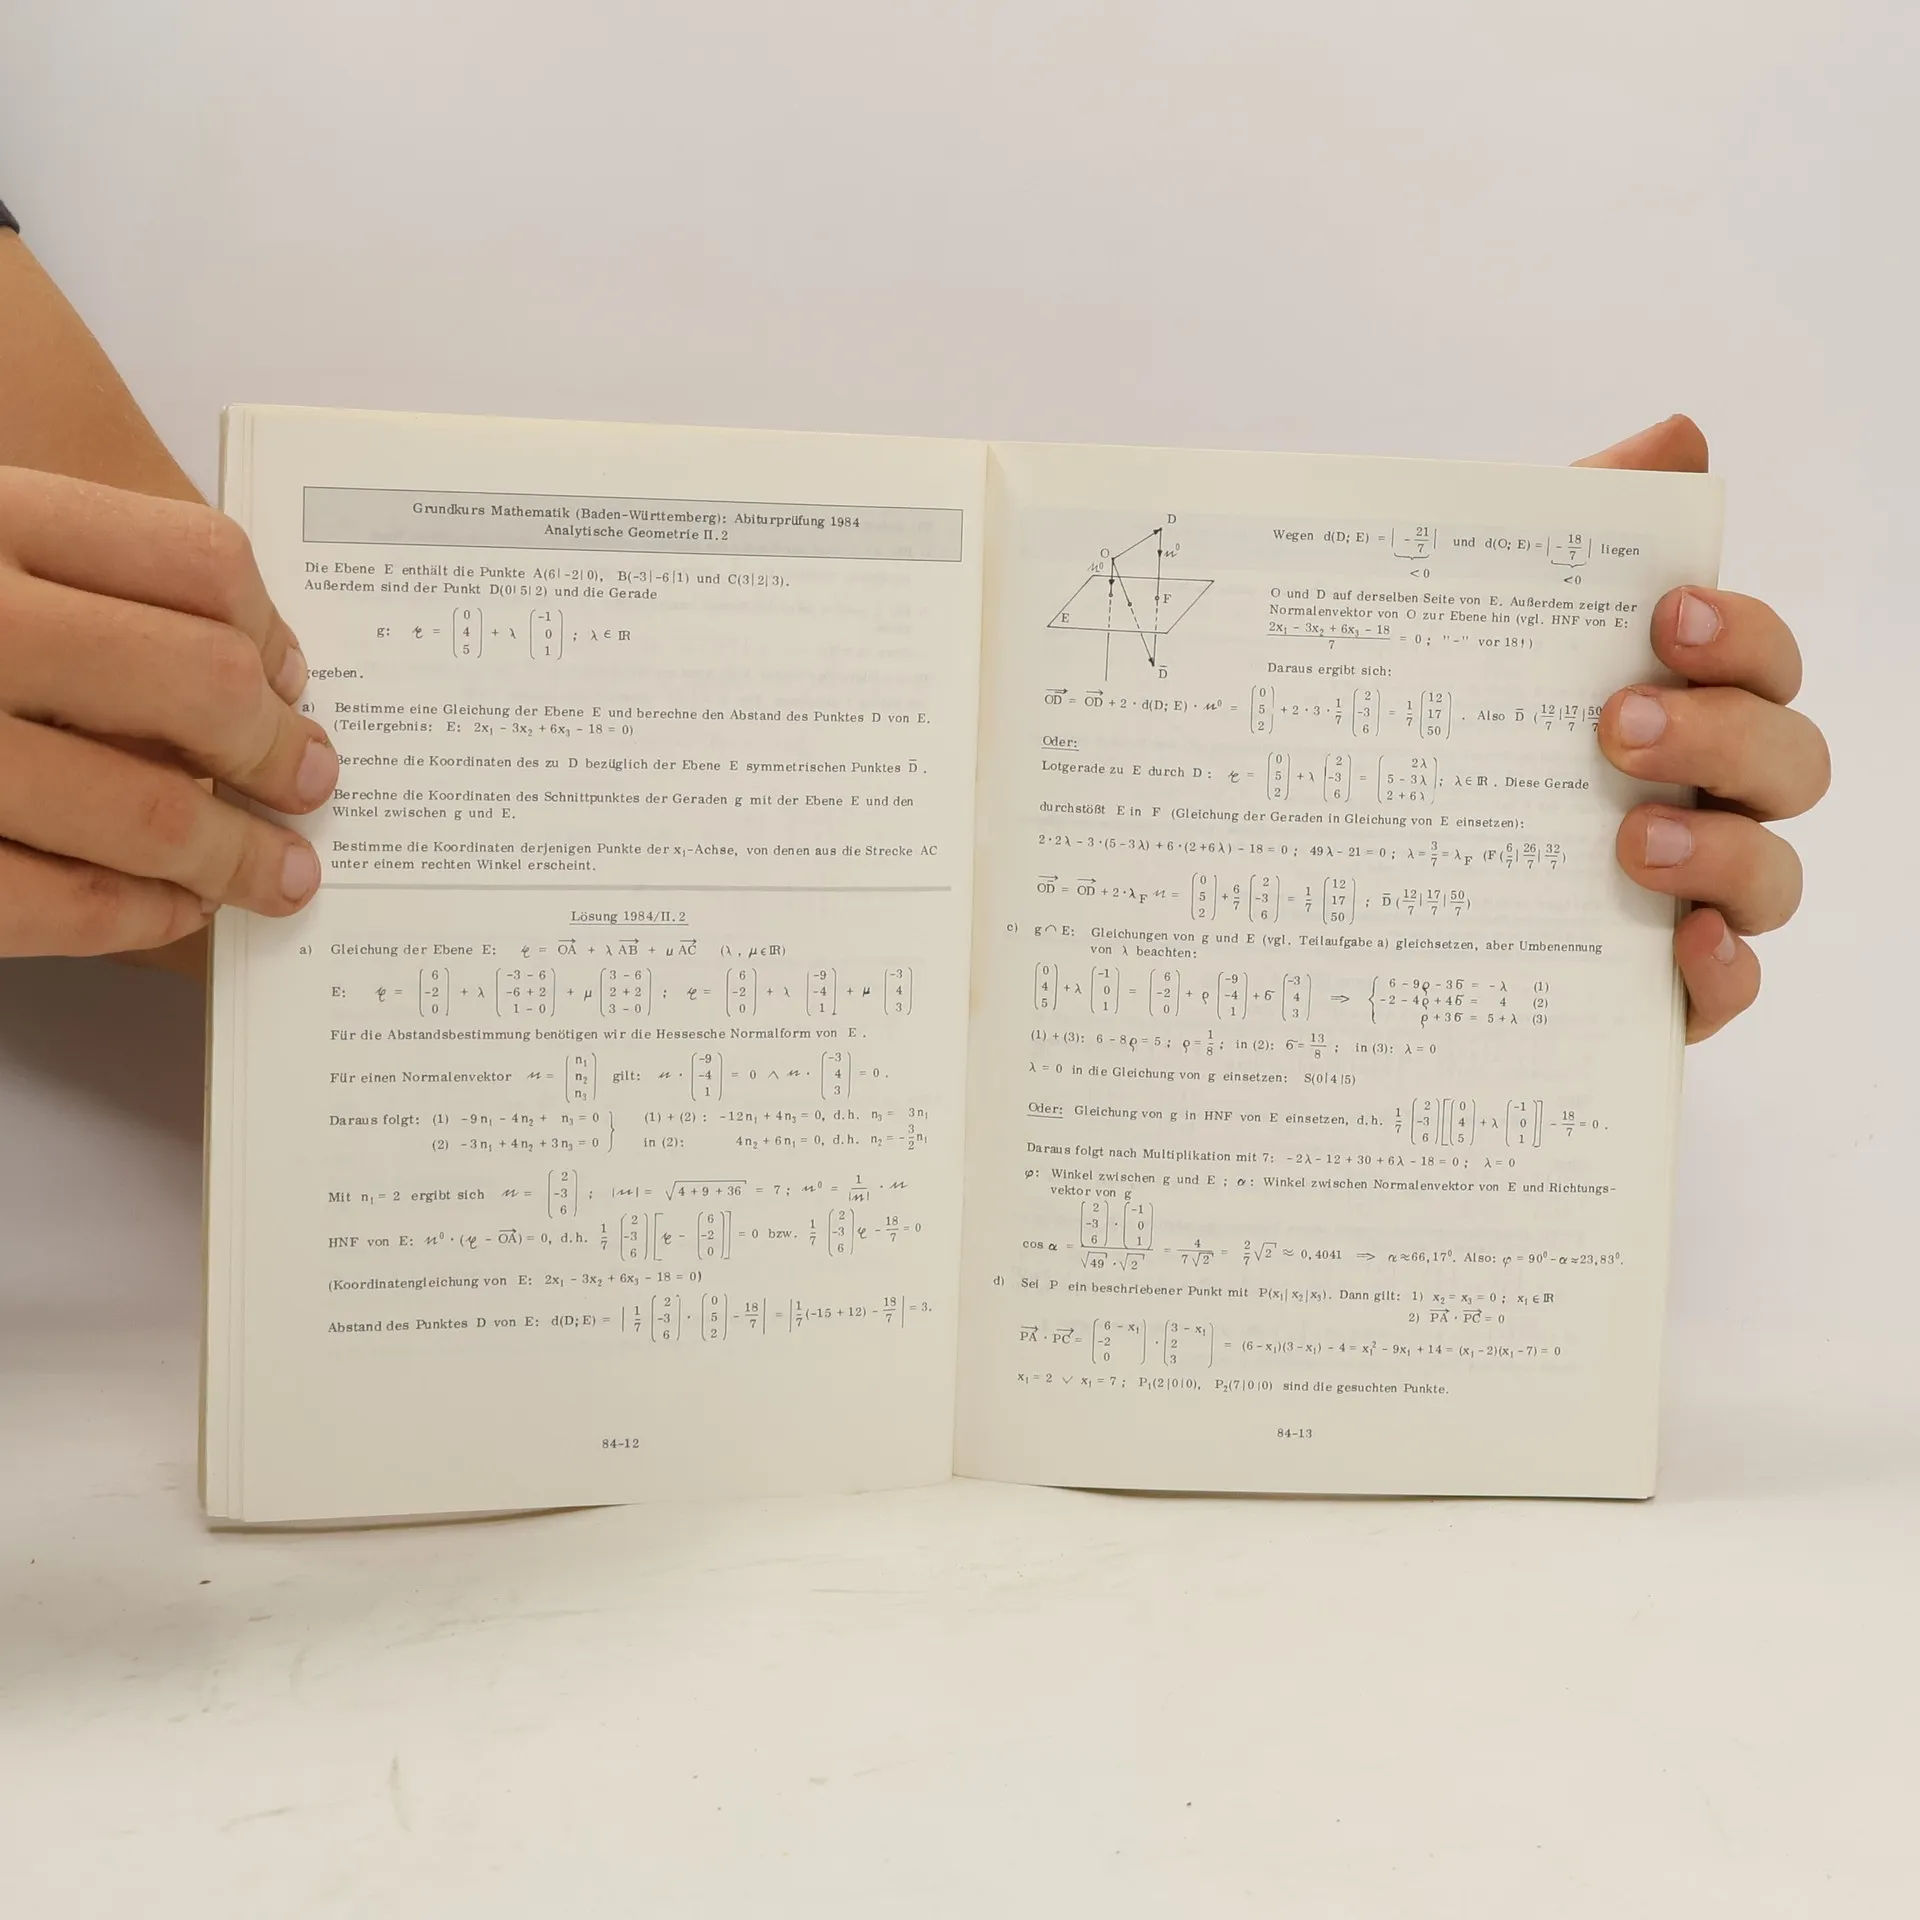 Grundkurs Mathematik (Baden-Württemberg): Abiturprüfung 1984
Analytische Geometrie II.2
Die Ebene E enthält die Punkte A(6|-2|0), B(-3|-6|1) und C(3|2|3).
Außerdem sind der Punkt D(0|5|2) und die Gerade
g: 𝔵 = (0 4 5) + λ (-1 0 1) ; λ ∈ ℝ
gegeben.
a) Bestimme eine Gleichung der Ebene E und berechne den Abstand des Punktes D von E.
(Teilergebnis: E: 2x₁ - 3x₂ + 6x₃ - 18 = 0)
Berechne die Koordinaten des zu D bezüglich der Ebene E symmetrischen Punktes D̄ .
Berechne die Koordinaten des Schnittpunktes der Geraden g mit der Ebene E und den
Winkel zwischen g und E.
Bestimme die Koordinaten derjenigen Punkte der x₁-Achse, von denen aus die Strecke AC
unter einem rechten Winkel erscheint.
Lösung 1984/II.2
a) Gleichung der Ebene E: 𝔵 = OA + λ AB + μ AC (λ , μ ∈ ℝ)
E: 𝔵 = (6 -2 0) + λ (-3 - 6 -6 + 2 1 - 0) + μ (3 - 6 2 + 2 3 - 0) ; 𝔵 = (6 -2 0) + λ (-9 -4 1) + μ (-3 4 3)
Für die Abstandsbestimmung benötigen wir die Hessesche Normalform von E .
Für einen Normalenvektor 𝔫 = (n₁ n₂ n₃) gilt: 𝔫 · (-9 -4 1) = 0 ∧ 𝔫 · (-3 4 3) = 0 .
Daraus folgt: (1) -9n₁ - 4n₂ + n₃ = 0 } (1) + (2) : -12n₁ + 4n₃ = 0, d.h. n₃ = 3n₁
(2) -3n₁ + 4n₂ + 3n₃ = 0 in (2): 4n₂ + 6n₁ = 0, d.h. n₂ = -3/2 n₁
Mit n₁ = 2 ergibt sich 𝔫 = (2 -3 6) ; |𝔫| = √(4 + 9 + 36) = 7 ; 𝔫⁰ = 1/|𝔫| · 𝔫
HNF von E: 𝔫⁰ · (𝔵 - OA) = 0, d.h. 1/7 (2 -3 6) [𝔵 - (6 -2 0)] = 0 bzw. 1/7 (2 -3 6) 𝔵 - 18/7 = 0
(Koordinatengleichung von E: 2x₁ - 3x₂ + 6x₃ - 18 = 0)
Abstand des Punktes D von E: d(D; E) = | 1/7 (2 -3 6) · (0 5 2) - 18/7 | = | 1/7 (-15 + 12) - 18/7 | = 3.
84-12
D
O
𝔫⁰
𝔫⁰
F
E
D̄
Wegen d(D; E) = | - 21/7 | und d(O; E) = | - 18/7 | liegen
<0 <0
O und D auf derselben Seite von E. Außerdem zeigt der
Normalenvektor von O zur Ebene hin (vgl. HNF von E:
(2x₁ - 3x₂ + 6x₃ - 18)/7 = 0 ; "-" vor 18!)
Daraus ergibt sich:
OD̄ = OD + 2 · d(D; E) · 𝔫⁰ = (0 5 2) + 2 · 3 · 1/7 (2 -3 6) = 1/7 (12 17 50) . Also D̄ (12/7 | 17/7 | 50/7
Oder:
Lotgerade zu E durch D : 𝔵 = (0 5 2) + λ (2 -3 6) = (2λ 5 - 3λ 2 + 6λ) ; λ ∈ ℝ . Diese Gerade
durchstößt E in F (Gleichung der Geraden in Gleichung von E einsetzen):
2·2λ - 3·(5 - 3λ) + 6·(2 + 6λ) - 18 = 0 ; 49λ - 21 = 0 ; λ = 3/7 = λF (F (6/7 | 26/7 | 32/7)
OD̄ = OD + 2·λF 𝔫 = (0 5 2) + 6/7 (2 -3 6) = 1/7 (12 17 50) ; D̄ (12/7 | 17/7 | 50/7)
c) g ∩ E: Gleichungen von g und E (vgl. Teilaufgabe a) gleichsetzen, aber Umbenennung
von λ beachten:
(0 4 5) + λ (-1 0 1) = (6 -2 0) + ρ (-9 -4 1) + σ (-3 4 3) ⟹ { 6 - 9ρ - 3σ = -λ (1)
-2 - 4ρ + 4σ = 4 (2)
ρ + 3σ = 5 + λ (3)
(1) + (3): 6 - 8ρ = 5 ; ρ = 1/8 ; in (2): σ = 13/8 ; in (3): λ = 0
λ = 0 in die Gleichung von g einsetzen: S(0|4|5)
Oder: Gleichung von g in HNF von E einsetzen, d.h. 1/7 (2 -3 6) [(0 4 5) + λ (-1 0 1)] - 18/7 = 0 .
Daraus folgt nach Multiplikation mit 7: -2λ - 12 + 30 + 6λ - 18 = 0 ; λ = 0
φ: Winkel zwischen g und E ; α: Winkel zwischen Normalenvektor von E und Richtungs-
vektor von g
cos α = (2 -3 6) · (-1 0 1) / √49 · √2 = 4/(7√2) = 2/7 √2 ≈ 0,4041 ⟹ α ≈ 66,17⁰. Also: φ = 90⁰ - α ≈ 23,83⁰.
d) Sei P ein beschriebener Punkt mit P(x₁|x₂|x₃). Dann gilt: 1) x₂ = x₃ = 0 ; x₁ ∈ ℝ
2) PA · PC = 0
PA · PC = (6 - x₁ -2 0) · (3 - x₁ 2 3) = (6 - x₁)(3 - x₁) - 4 = x₁² - 9x₁ + 14 = (x₁ - 2)(x₁ - 7) = 0
x₁ = 2 ∨ x₁ = 7 ; P₁(2|0|0), P₂(7|0|0) sind die gesuchten Punkte.
84-13